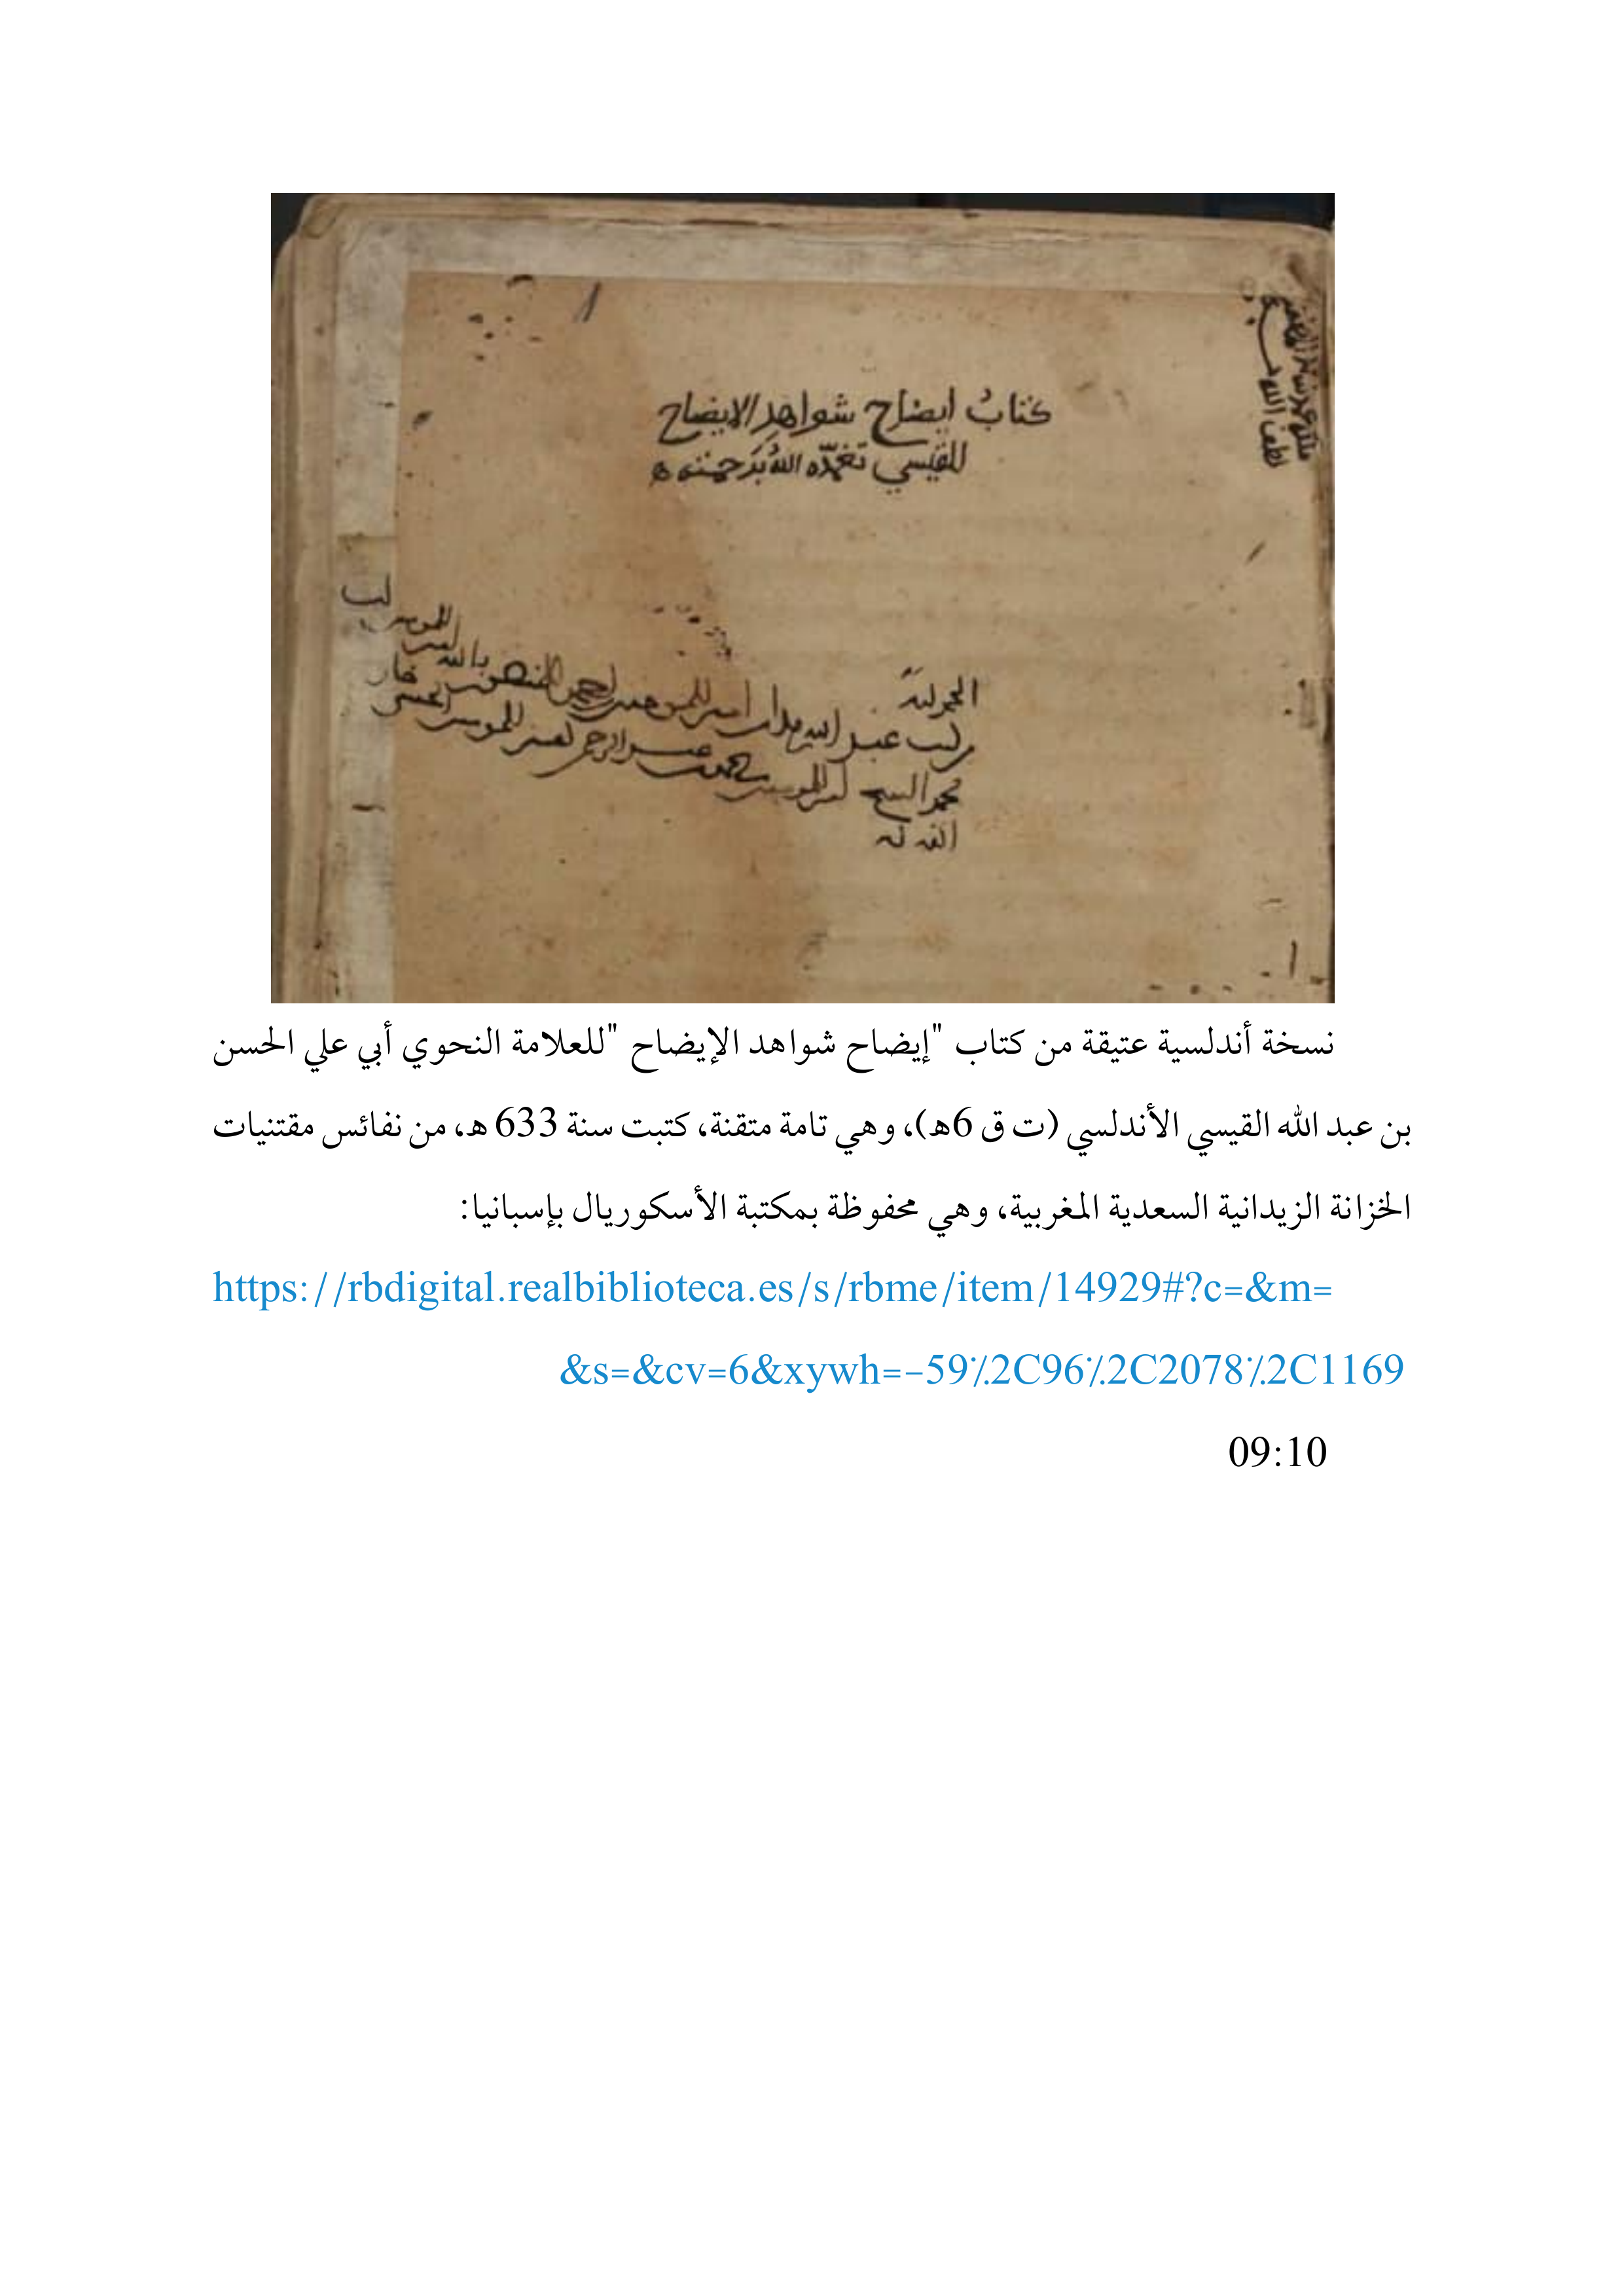 كتابُ ايضاح شواهد الايضاح
للقيسي تغمّده اللهُ برحمته
الحمد لله
أمير المومنين أحمد المنصور بالله
أمير المومنين الحسني
الله له
نسخة أندلسية عتيقة من كتاب "إيضاح شواهد الإيضاح "للعلامة النحوي أبي علي الحسن
بن عبد الله القيسي الأندلسي (ت ق 6ه)، وهي تامة متقنة، كتبت سنة 633 ه، من نفائس مقتنيات
الخزانة الزيدانية السعدية المغربية، وهي محفوظة بمكتبة الأسكوريال بإسبانيا:
https://rbdigital.realbiblioteca.es/s/rbme/item/14929#?c=&m=
&s=&cv=6&xywh=-59%2C96%2C2078%2C1169
09:10